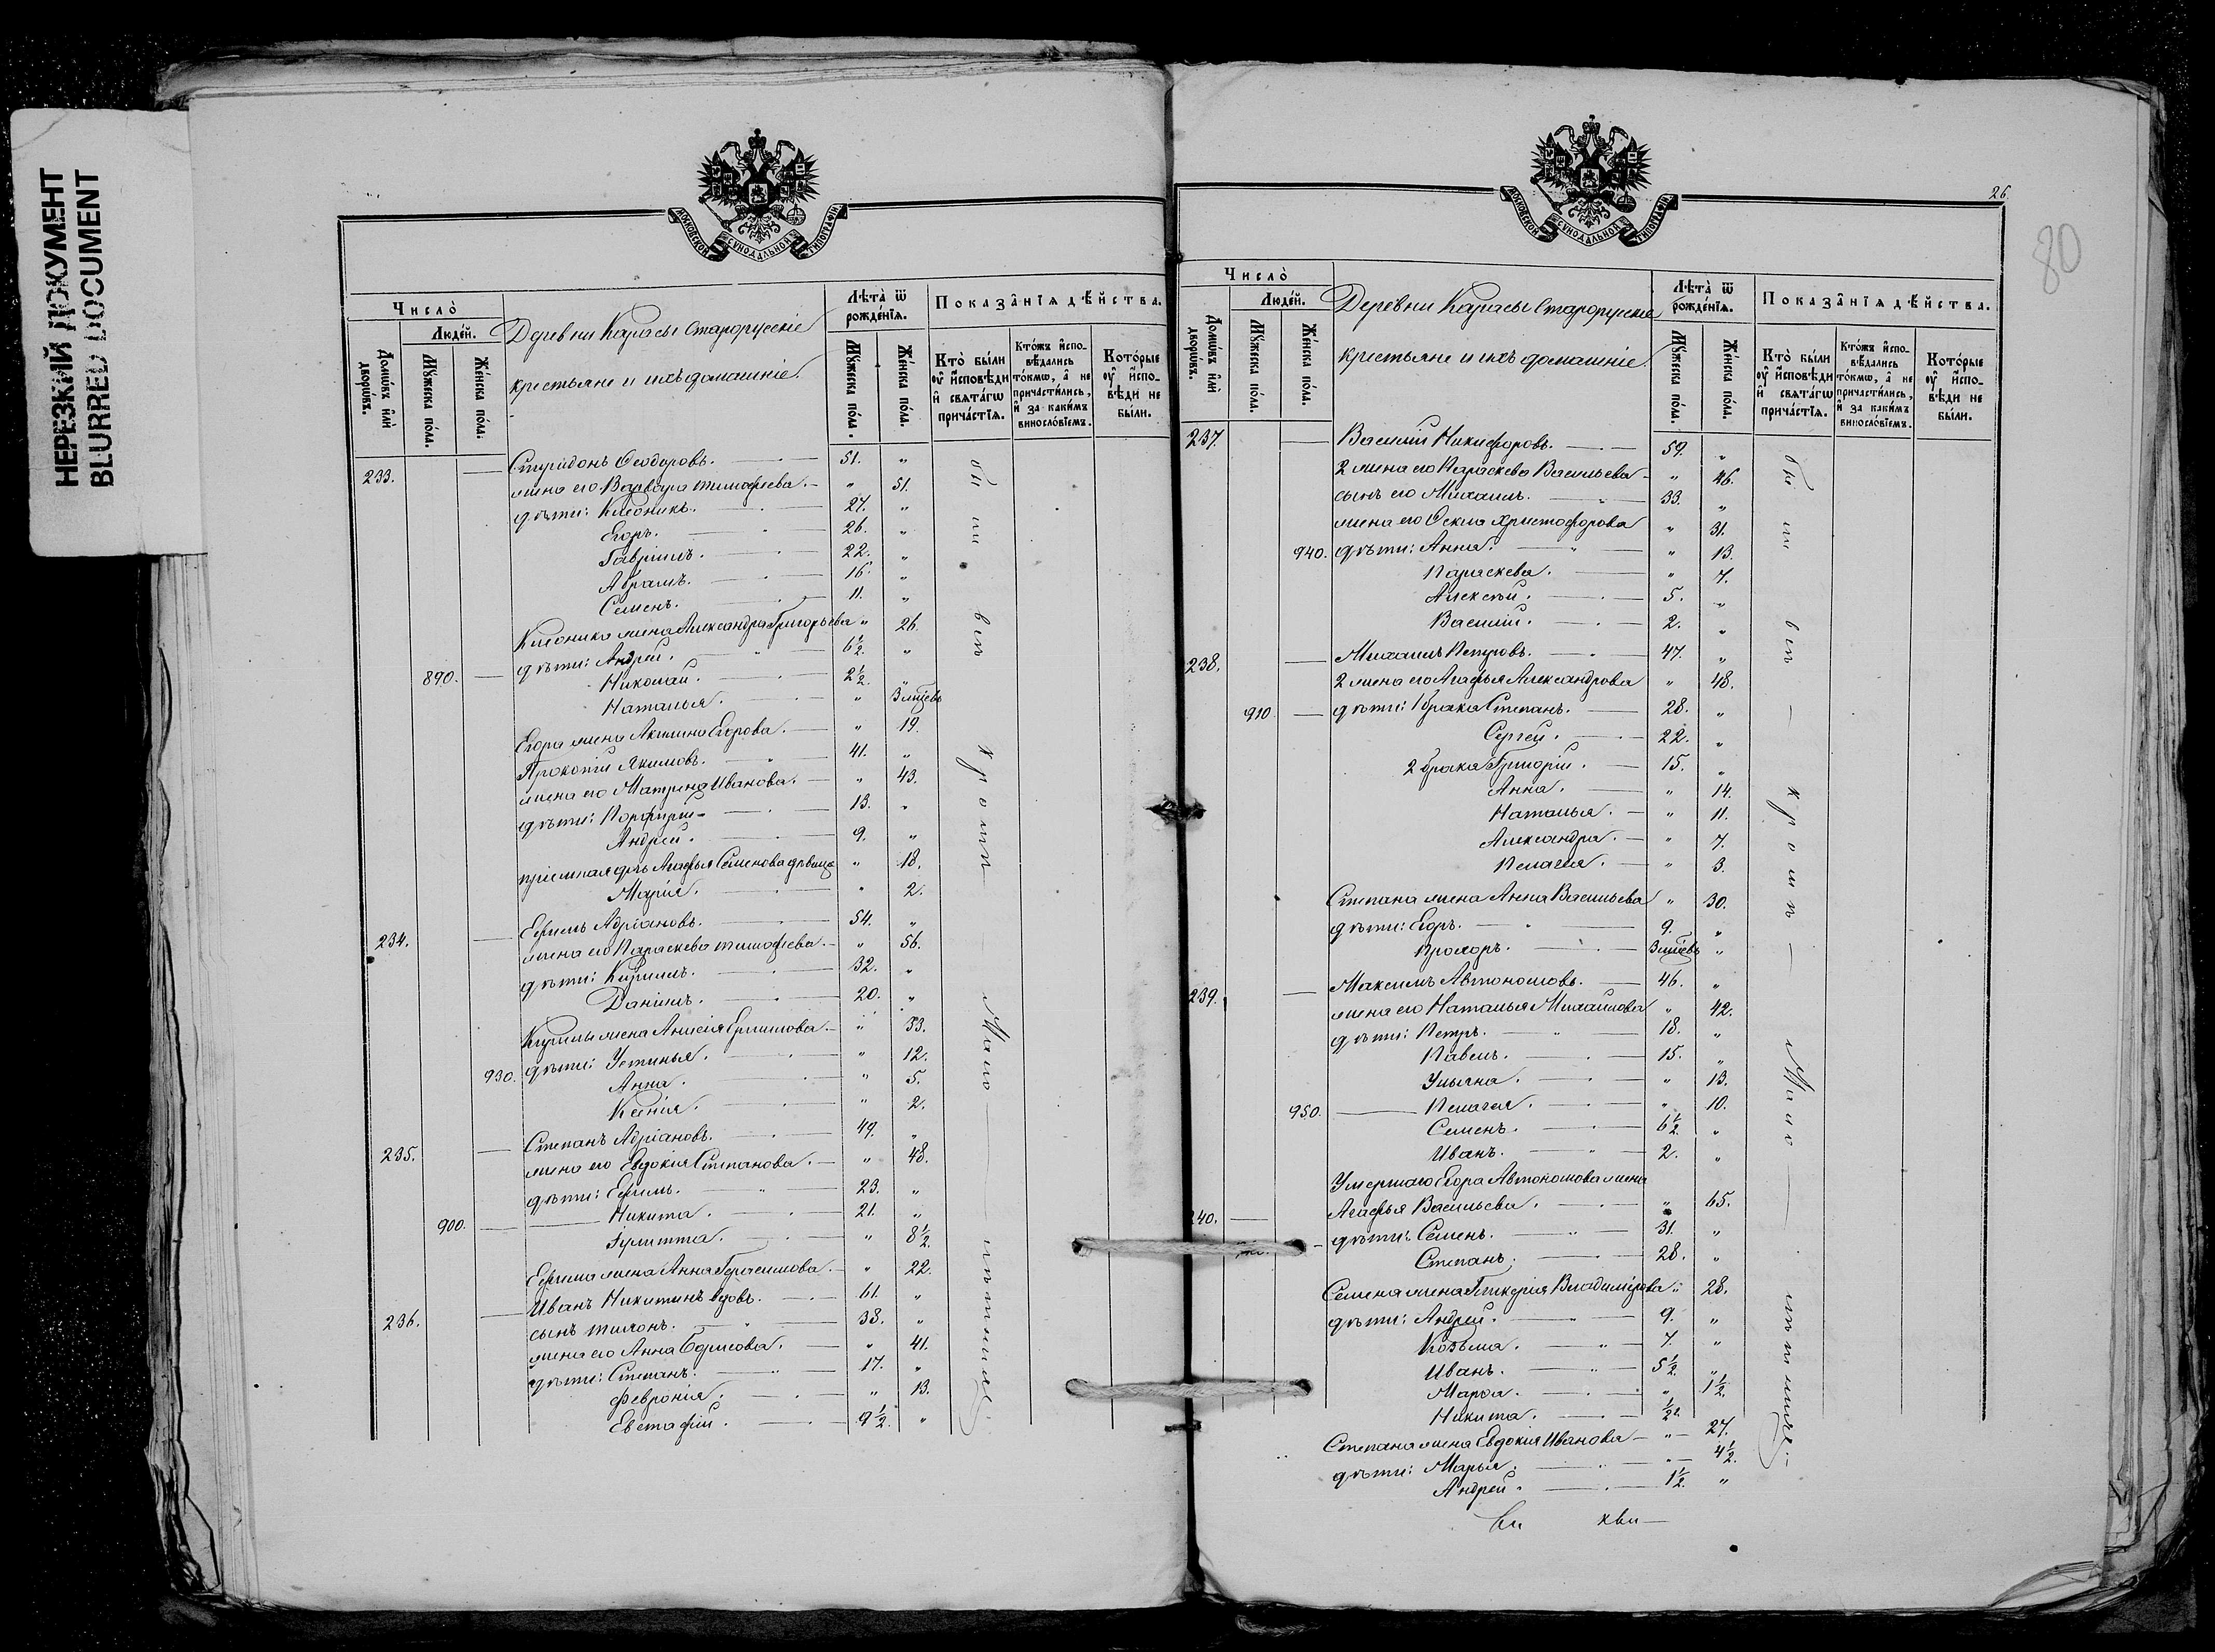 НЕРЕЗКИЙ ДОКУМЕНТ
BLURRED DOCUMENT
МОСКОВСКОЙ СѴНОДАЛЬНОЙ ТИПОГРАФІИ
Число̀
Люде́й.
Домѡ́въ и҆лѝ дворѡ́въ.
Мꙋ́жеска по́ла.
Же́нска по́ла.
Деревни Карасы Старорусскіе
крестьяне и ихъ домашніе
Лѣта̀ ѿ рожде́нїѧ.
Мꙋ́жеска по́ла.
Же́нска по́ла.
Показа̑нїѧ дѣ́йства.
Кто̀ бы́ли ᲂу҆ и҆сповѣ́ди и҆ свѧта́гѡ прича́стїѧ.
Кто́жъ и҆сповѣ́дались то́кмѡ, а҆ не причасти́лись, и҆ за каки́мъ винослові́емъ.
Кото́рые ᲂу҆ и҆сповѣ́ди не бы́ли.
233. Спиридонъ Ѳеодоровъ. 51. "
жена его Варвара Тимофеева. " 51.
дѣти: Клеоникъ. 27. "
Егоръ. 26. "
Гавріилъ. 22. "
Абрамъ. 16. "
Семенъ. 11. "
Клеоника жена Александра Григорьева " 26.
дѣти: Андрей. 6½. "
890. Николай. 2½. "
Наталья. " 3 мѣсев
Егора жена Акилина Егорова. " 19.
Прокопій Якимовъ. 41. "
жена его Матрена Иванова. " 43.
дѣти: Порфирій 13. "
Андрей. 9. "
пріемная дчь Агафья Семенова дѣвица " 18.
Марія. " 2.
234. Ефимъ Адріановъ. 54. "
жена его Параскева Тимофеева. " 56.
дѣти: Кирилъ. 32. "
Даніилъ. 20. "
Кирилы жена Анисія Ермилова. " 33.
930. дѣти: Устинья. " 12.
Анна. " 5.
Ксенія. " 2.
235. Степанъ Адріановъ. 49. "
жена его Евдокія Степанова. " 48.
дѣти: Ефимъ. 23. "
900. Никита. 21. "
Іулитта. " 8½.
Ефима жена Анна Герасимова. " 22.
236. Иванъ Никитинъ вдовъ. 61. "
сынъ Тихонъ. 38. "
жена его Анна Борисова. " 41.
дѣти: Степанъ. 17. "
Февронія. " 13.
Евстафій. 9½. "
26.
80
МОСКОВСКОЙ СѴНОДАЛЬНОЙ ТИПОГРАФІИ
Число̀
Люде́й.
Домѡ́въ и҆лѝ дворѡ́въ.
Мꙋ́жеска по́ла.
Же́нска по́ла.
Деревни Карасы Старорусскіе
крестьяне и ихъ домашніе.
Лѣта̀ ѿ рожде́нїѧ.
Мꙋ́жеска по́ла.
Же́нска по́ла.
Показа̑нїѧ дѣ́йства.
Кто̀ бы́ли ᲂу҆ и҆сповѣ́ди и҆ свѧта́гѡ прича́стїѧ.
Кто́жъ и҆сповѣ́дались то́кмѡ, а҆ не причасти́лись, и҆ за каки́мъ винослові́емъ.
Кото́рые ᲂу҆ и҆сповѣ́ди не бы́ли.
237. Василій Никифоровъ. 59. "
2 жена его Параскева Васильева " 46.
сынъ его Михаилъ. 33. "
жена его Ѳекла Христофорова " 31.
940. дѣти: Анна. " 13.
Параскева. " 7.
Алексѣй. 5. "
Василій. 2. "
238. Михаилъ Петровъ. 47. "
2 жена его Агафья Александрова " 48.
910. дѣти: 1 брака Степанъ. 28. "
Сергей. 22. "
2 брака Григорій. 15. "
Анна. " 14.
Наталья. " 11.
Александра. " 7.
Пелагея. " 3.
Степана жена Анна Васильева " 30.
дѣти: Егоръ. 9. "
Прохоръ. 3 мѣсев "
239. Максимъ Автономовъ. 46. "
жена его Наталья Михайлова " 42.
дѣти: Петръ. 18. "
Павелъ. 15. "
Ульяна. " 13.
950. Пелагея. " 10.
Семенъ. 6½ "
Иванъ. 2. "
Умершаго Егора Автономова жена
240. Агафья Васильева. " 65.
дѣти: Семенъ. 31. "
Степанъ. 28. "
Семена жена Гликерія Владимірова " 28.
дѣти: Андрей. 9. "
Козьма. 7. "
Иванъ. 5½ "
Марѳа. " 1½.
Никита. ½.
Степана жена Евдокія Иванова " 27.
дѣти: Марья. " 4½.
Андрей. 1½. "
были всѣ кромѣ малолѣтнихъ